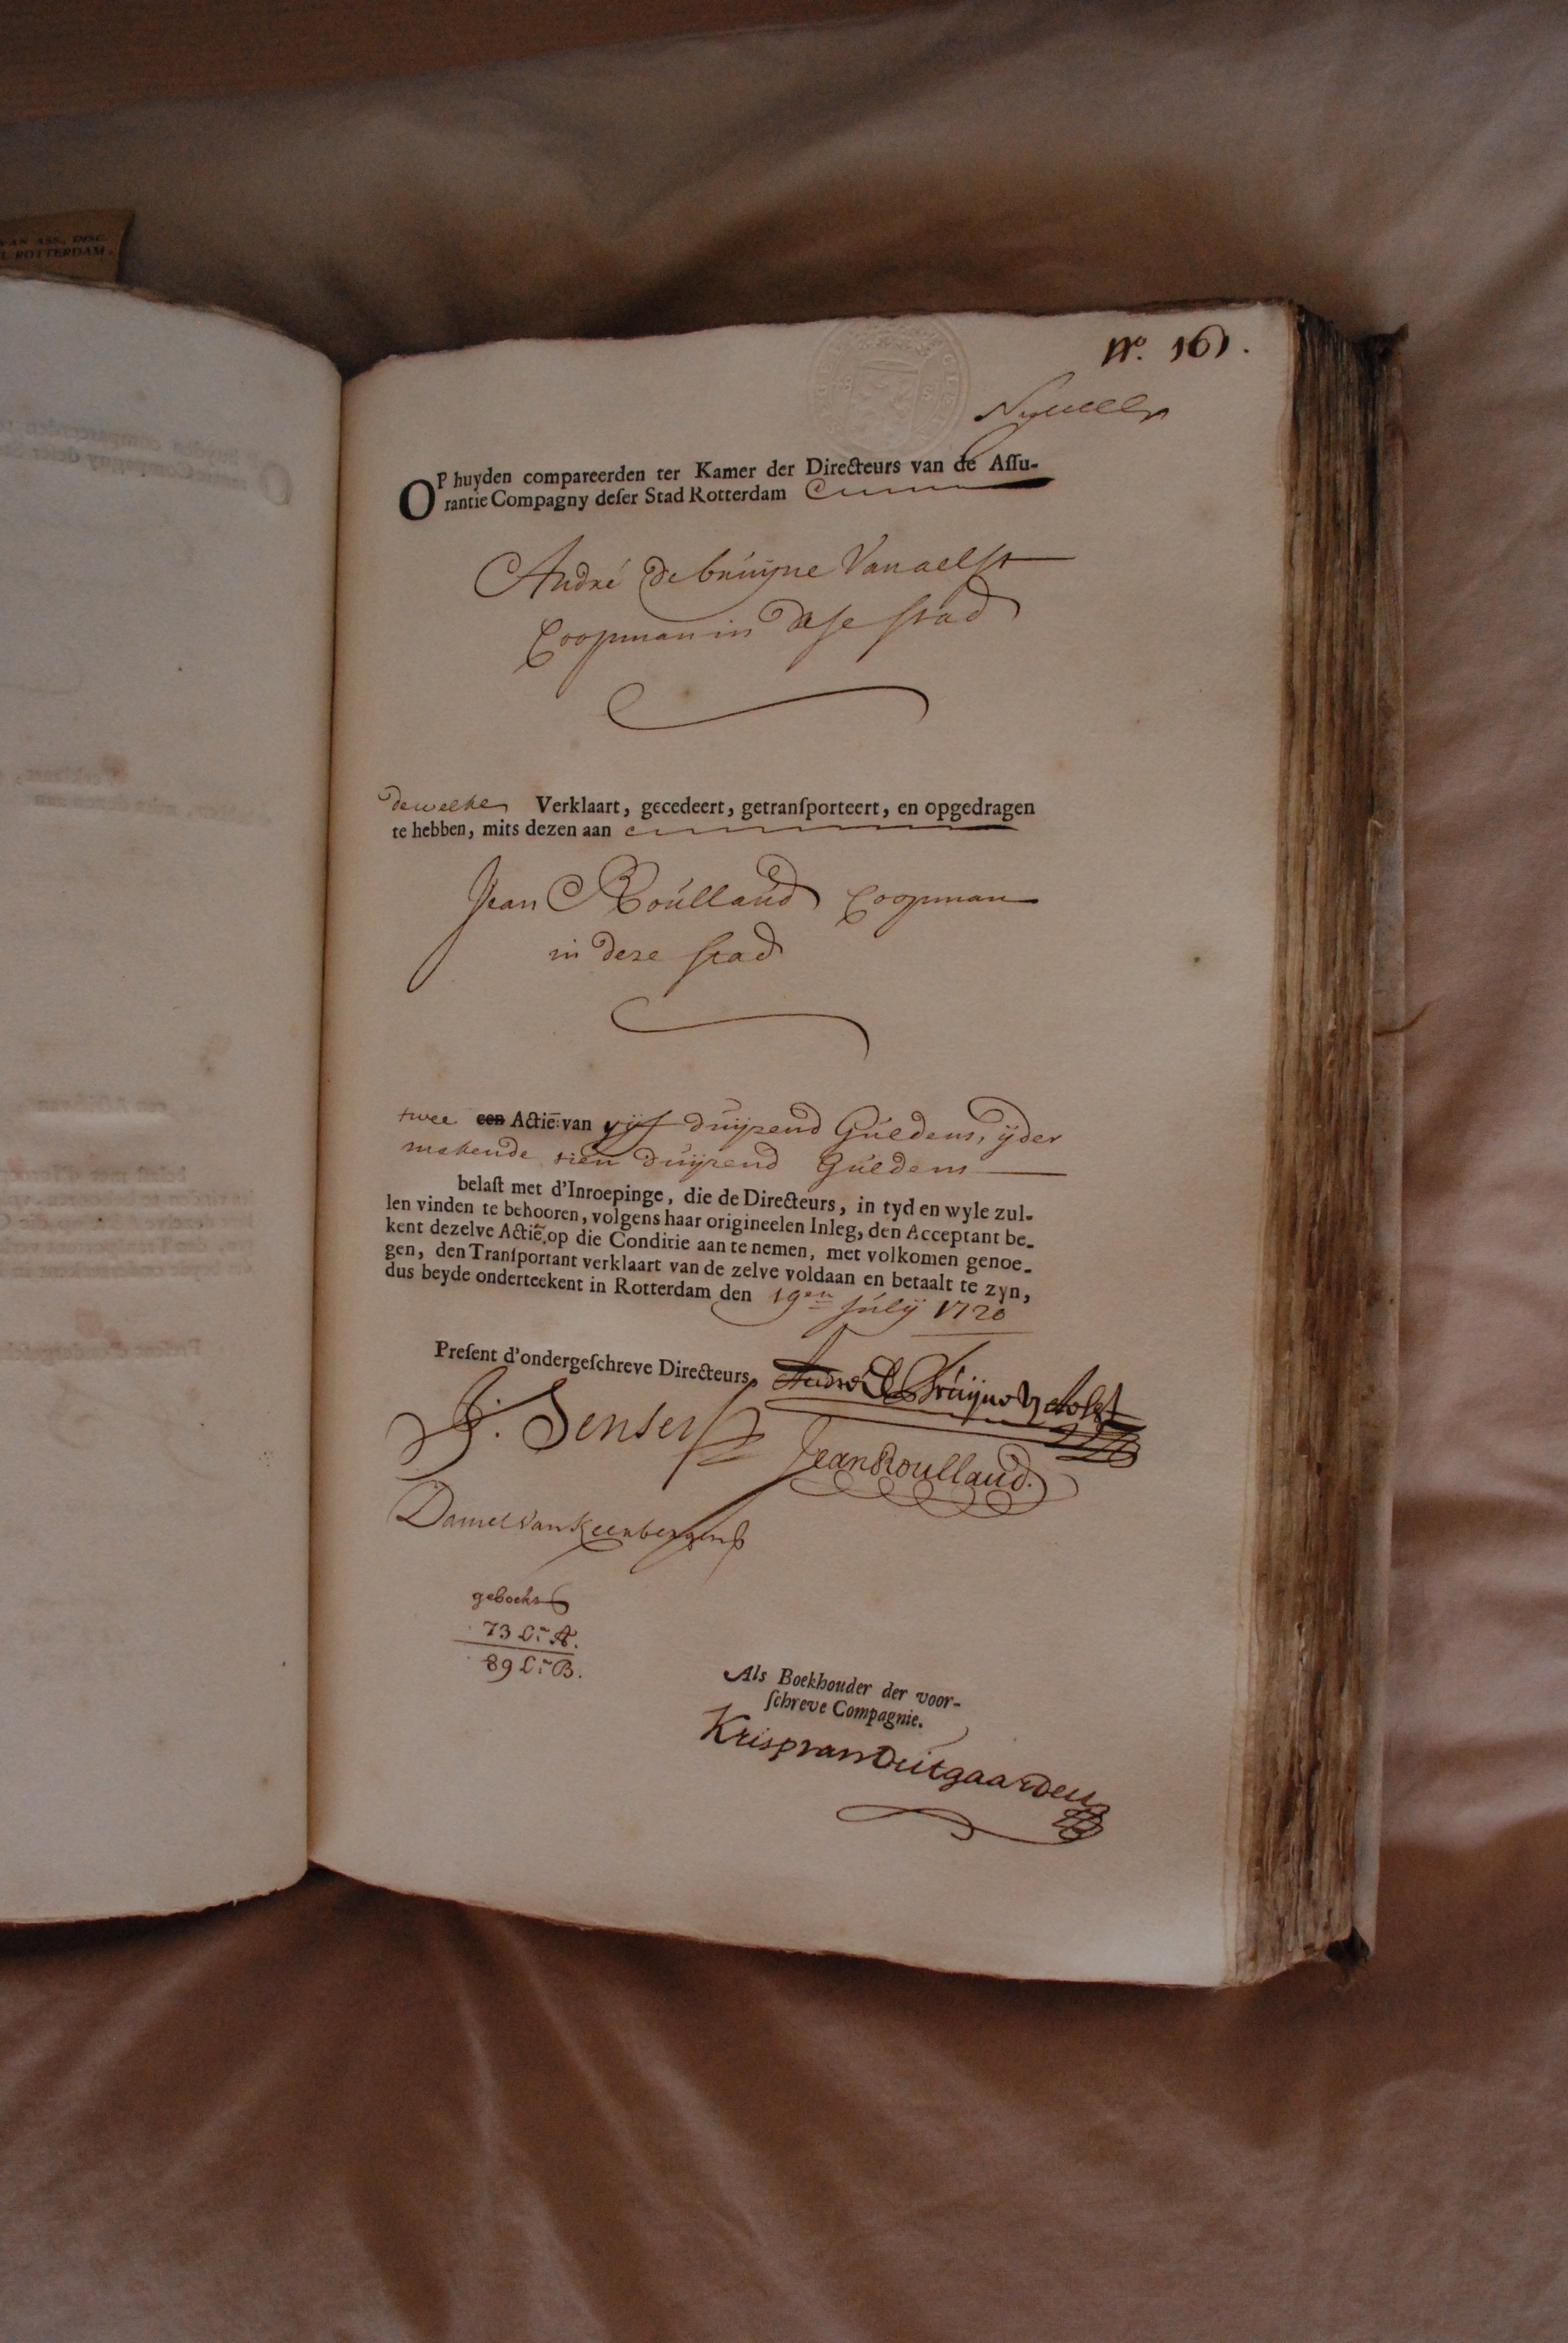 VAN ASS., DISC.
ROTTERDAM.
No. 161.
OP huyden compareerden ter Kamer der Directeurs van de Assu-
rantie Compagny deser Stad Rotterdam
André de bruijne Van aelst
Coopman in dese stad
dewelke Verklaart, gecedeert, getransporteert, en opgedragen
te hebben, mits dezen aan
Jean Roulland Coopman
in deze stad
twee een Actie: van vijf duijzend Guldens, ijder
makende tien duijzend Guldens
belast met d'Inroepinge, die de Directeurs, in tyd en wyle zul-
len vinden te behooren, volgens haar origineelen Inleg, den Acceptant be-
kent dezelve Actie, op die Conditie aan te nemen, met volkomen genoe-
gen, den Transportant verklaart van de zelve voldaan en betaalt te zyn,
dus beyde onderteekent in Rotterdam den 19en Julij 1720
Present d'ondergeschreve Directeurs, André de Bruijne v Aelst
J. Senserff
Jean Roulland.
Daniel van
geboekt
73 Lra A.
89 Lra B.
Als Boekhouder der voor-
schreve Compagnie.
Krisp van Duitgaarden